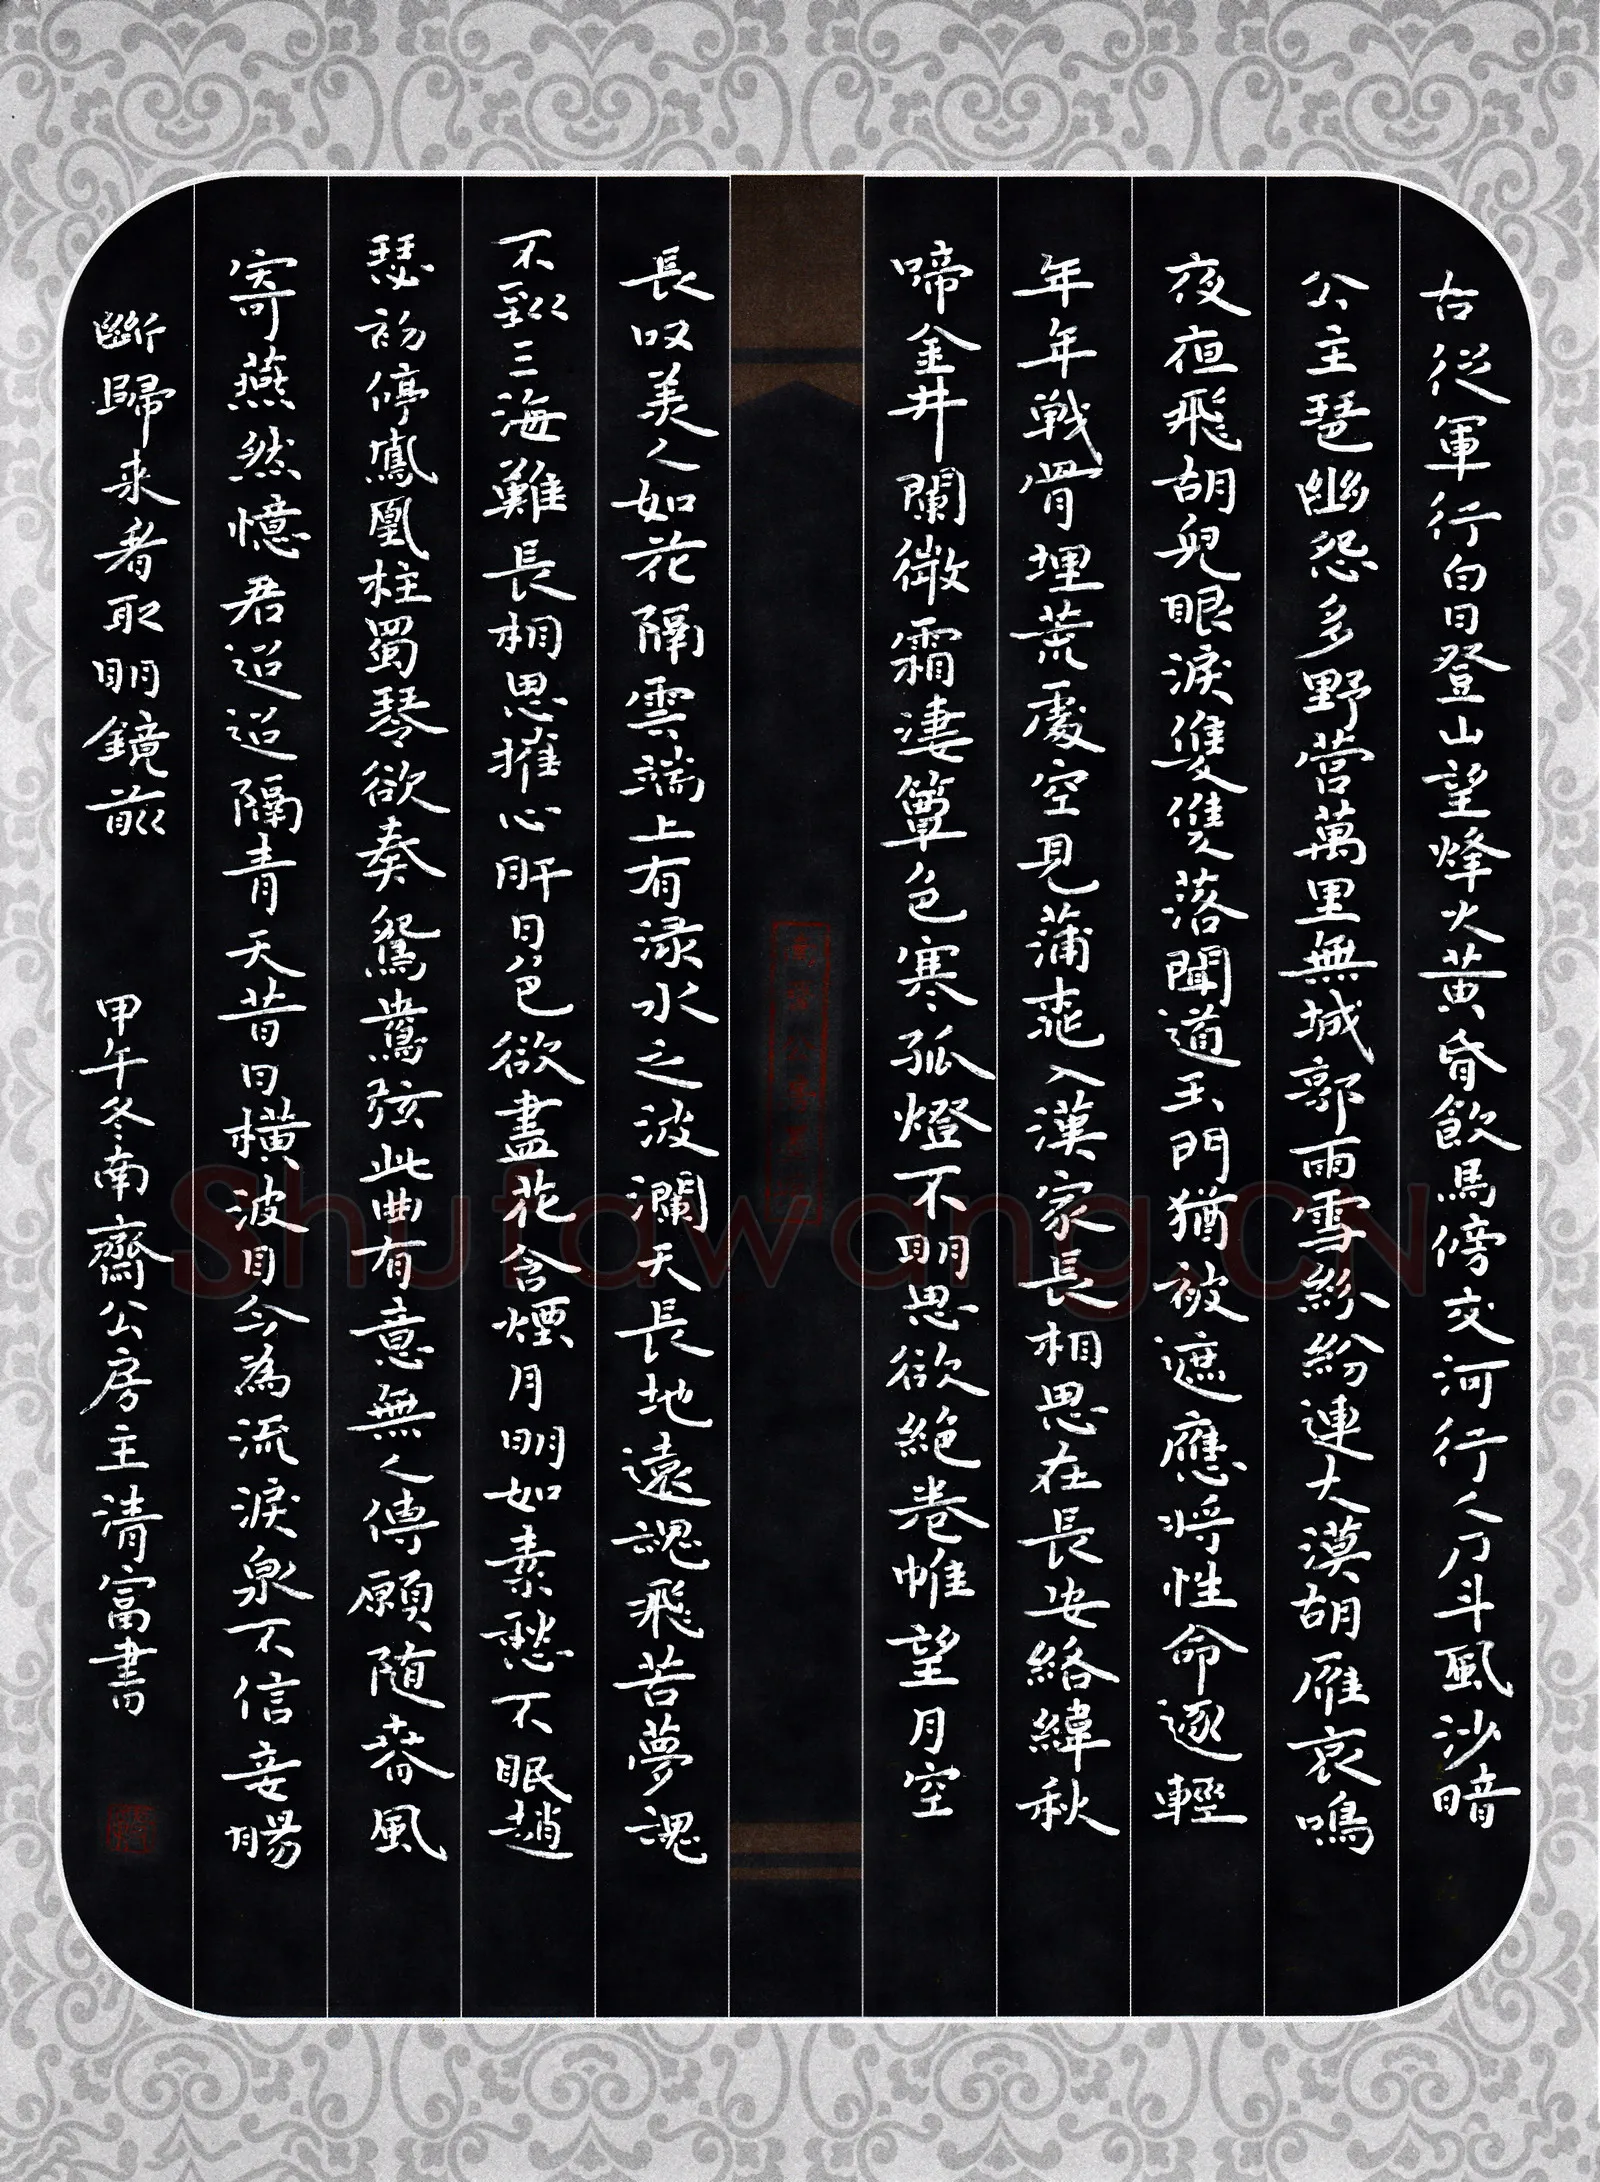 古從軍行白日登山望烽火黃昏飲馬傍交河行人刀斗風沙暗
公主琶幽怨多野營萬里無城郭雨雪紛紛連大漠胡雁哀鳴
夜夜飛胡兒眼淚雙雙落聞道玉門猶被遮應將性命逐輕
年年戦骨埋荒處空見蒲萄入漢家長相思在長安絡緯秋
啼金井闌微霜淒簟色寒孤燈不明思欲絕卷帷望月空
長叹美人如花隔雲端上有淥水之波瀾天長地遠魂飛苦夢魂
不到三海難長相思摧心肝日色欲盡花含煙月明如素愁不眠趙
瑟初停鳳凰柱蜀琴欲奏鴛鴦弦此曲有意無人傳願隨春風
寄燕然憶君迢迢隔青天昔日橫波目今為流淚泉不信妾腸
斷歸来看取明鏡前 甲午冬南齋公房主清富書
Shufawang.CN